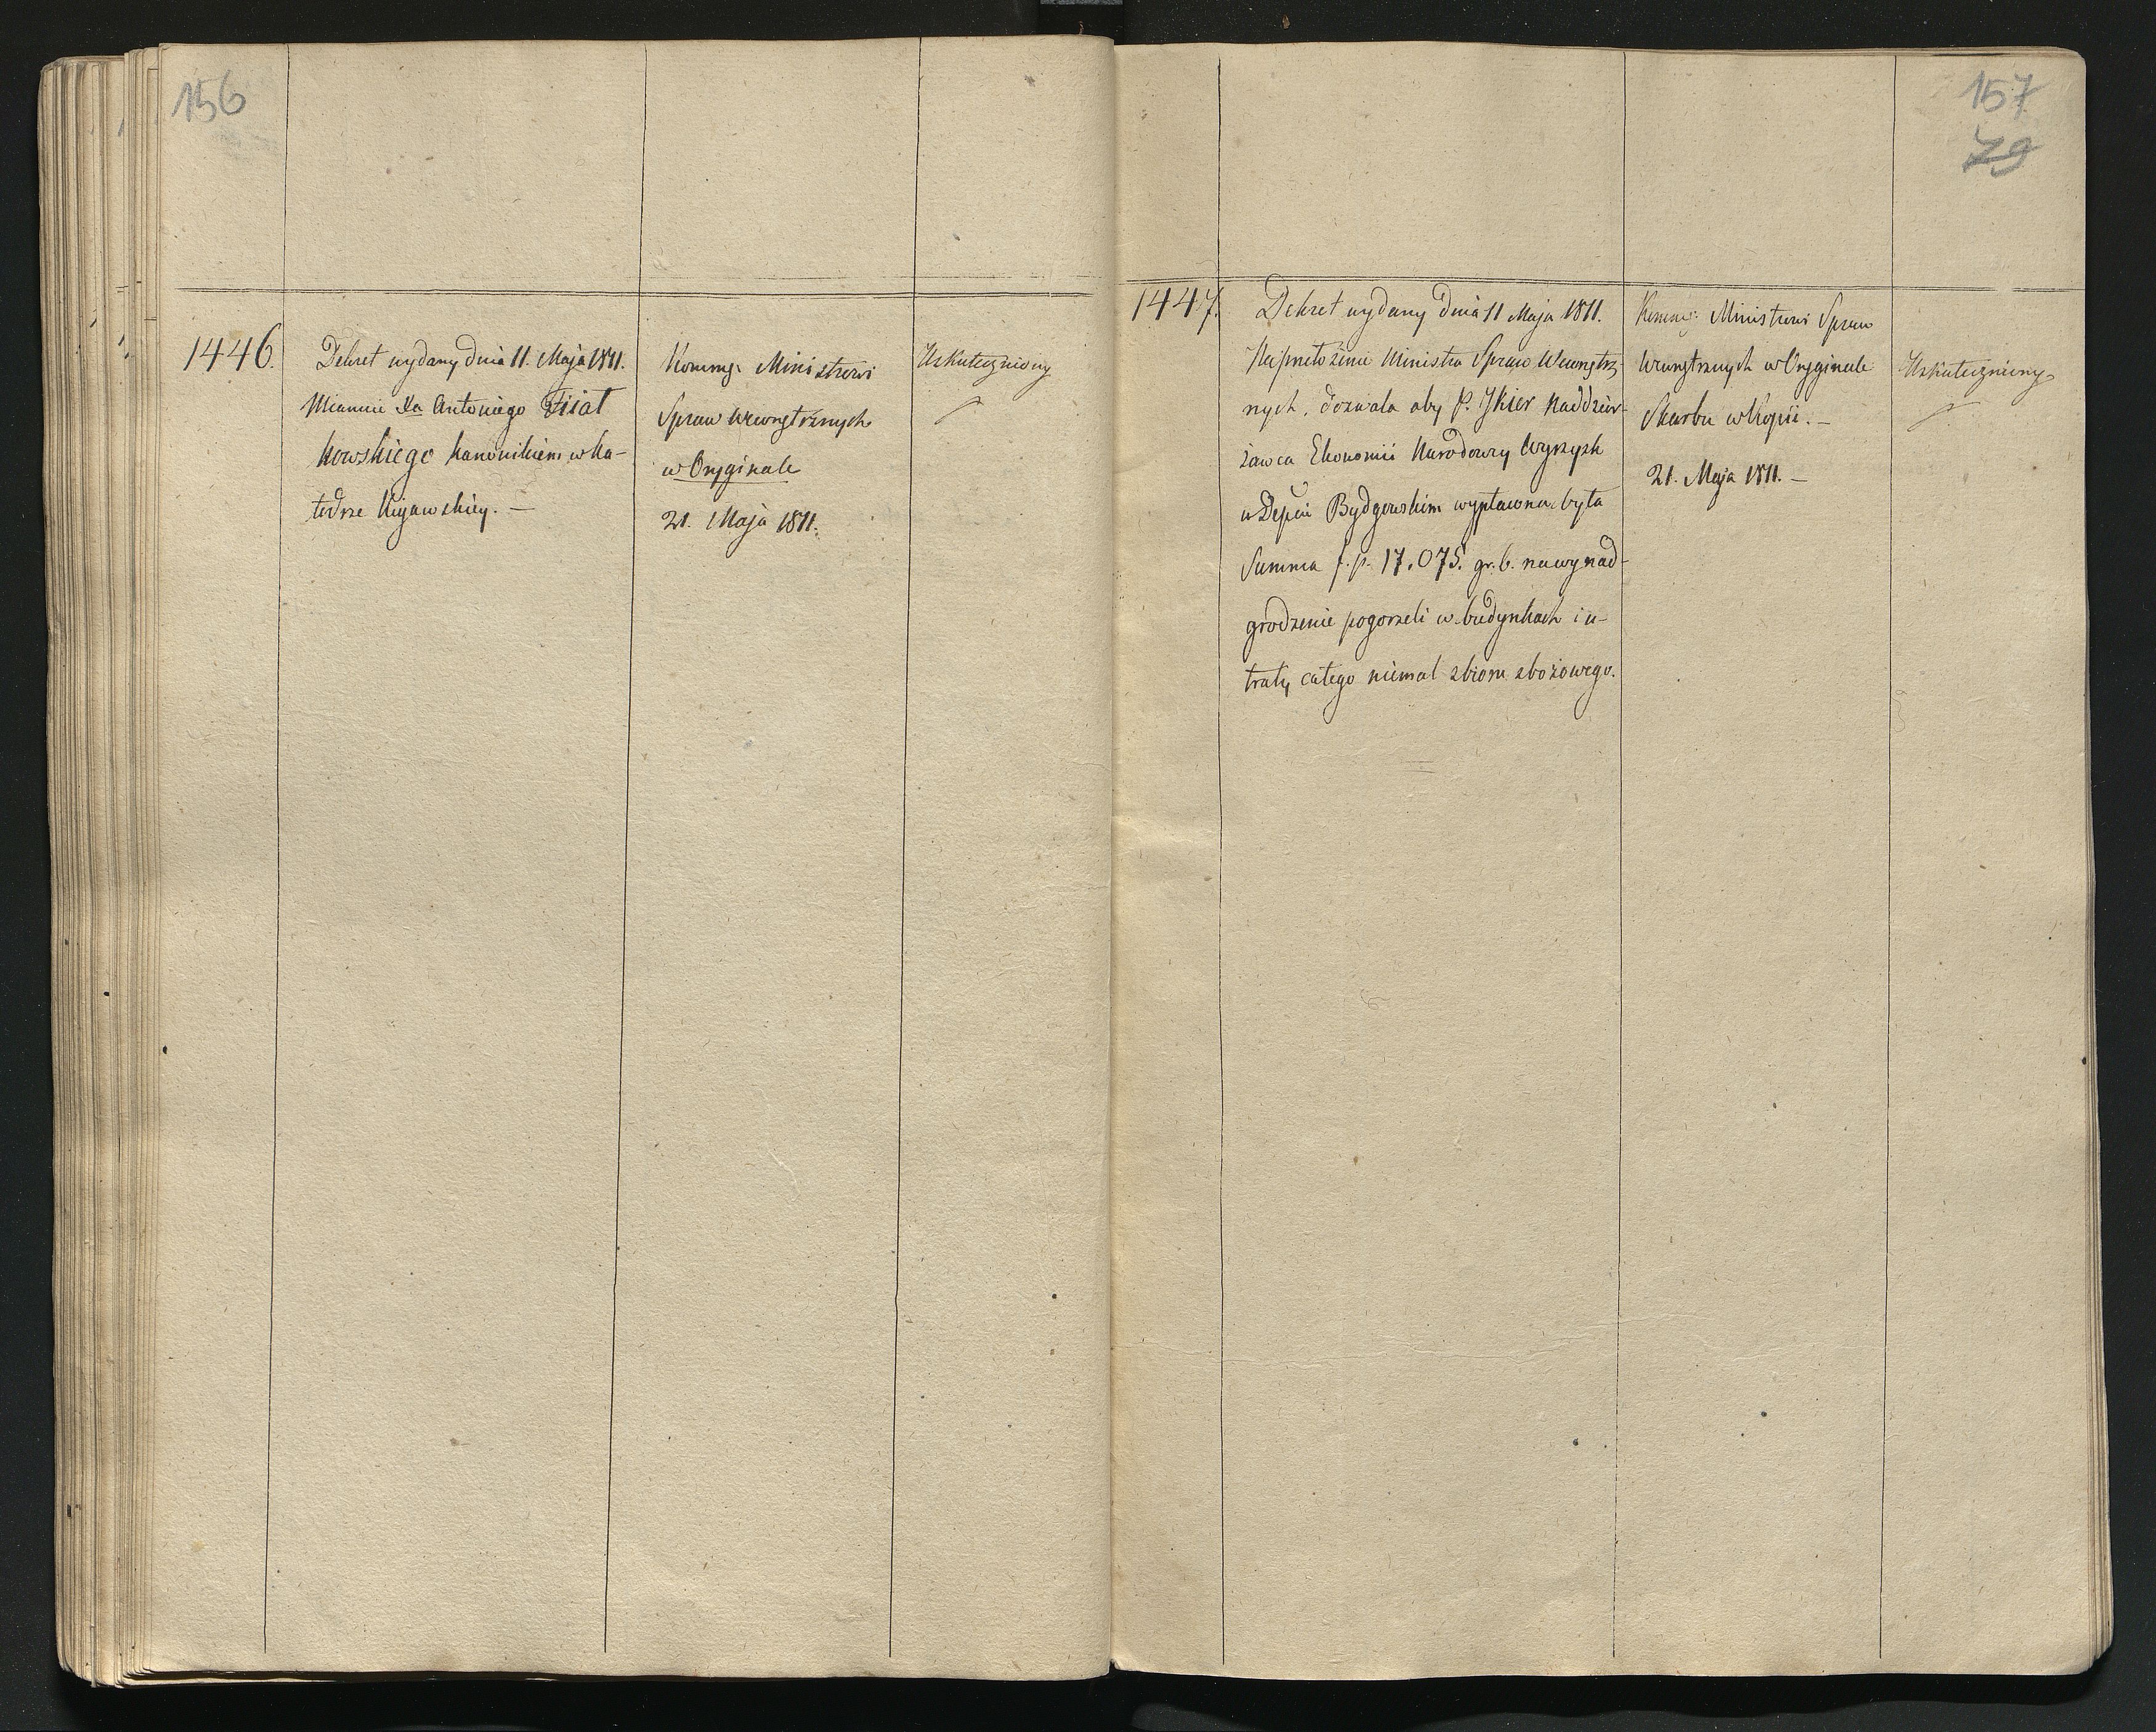 156
1446.
Dekret wydany dnia 11. Maja 1811.
Mianuie Xa Antoniego Fijał
kowskiego kanonikiem w Ka-
tedrze Kujawskiey. —
Kommg: Ministrowi
Spraw Wewnętrznych
w Oryginale
21. Maja 1811.
Uskuteczniony
157
79
1447.
Dekret wydany dnia 11 Maja 1811.
Na przełożenie Ministra Spraw Wewnętrz
nych, dozwala aby P. Ykier Naddzier-
żawca Ekonomii Narodowey
w Depcie Bydgowskim wypłacona była
Summa f. p. 17.075. gr. 6. na wynad-
grodzenie pogorzeli w budynkach i u-
traty całego niemal zbioru zbożowego.
Kommg: Ministrowi Spraw
Wewnętrznych w Oryginale
Skarbu w Kopii. —
21. Maja 1811. —
Uskuteczniony